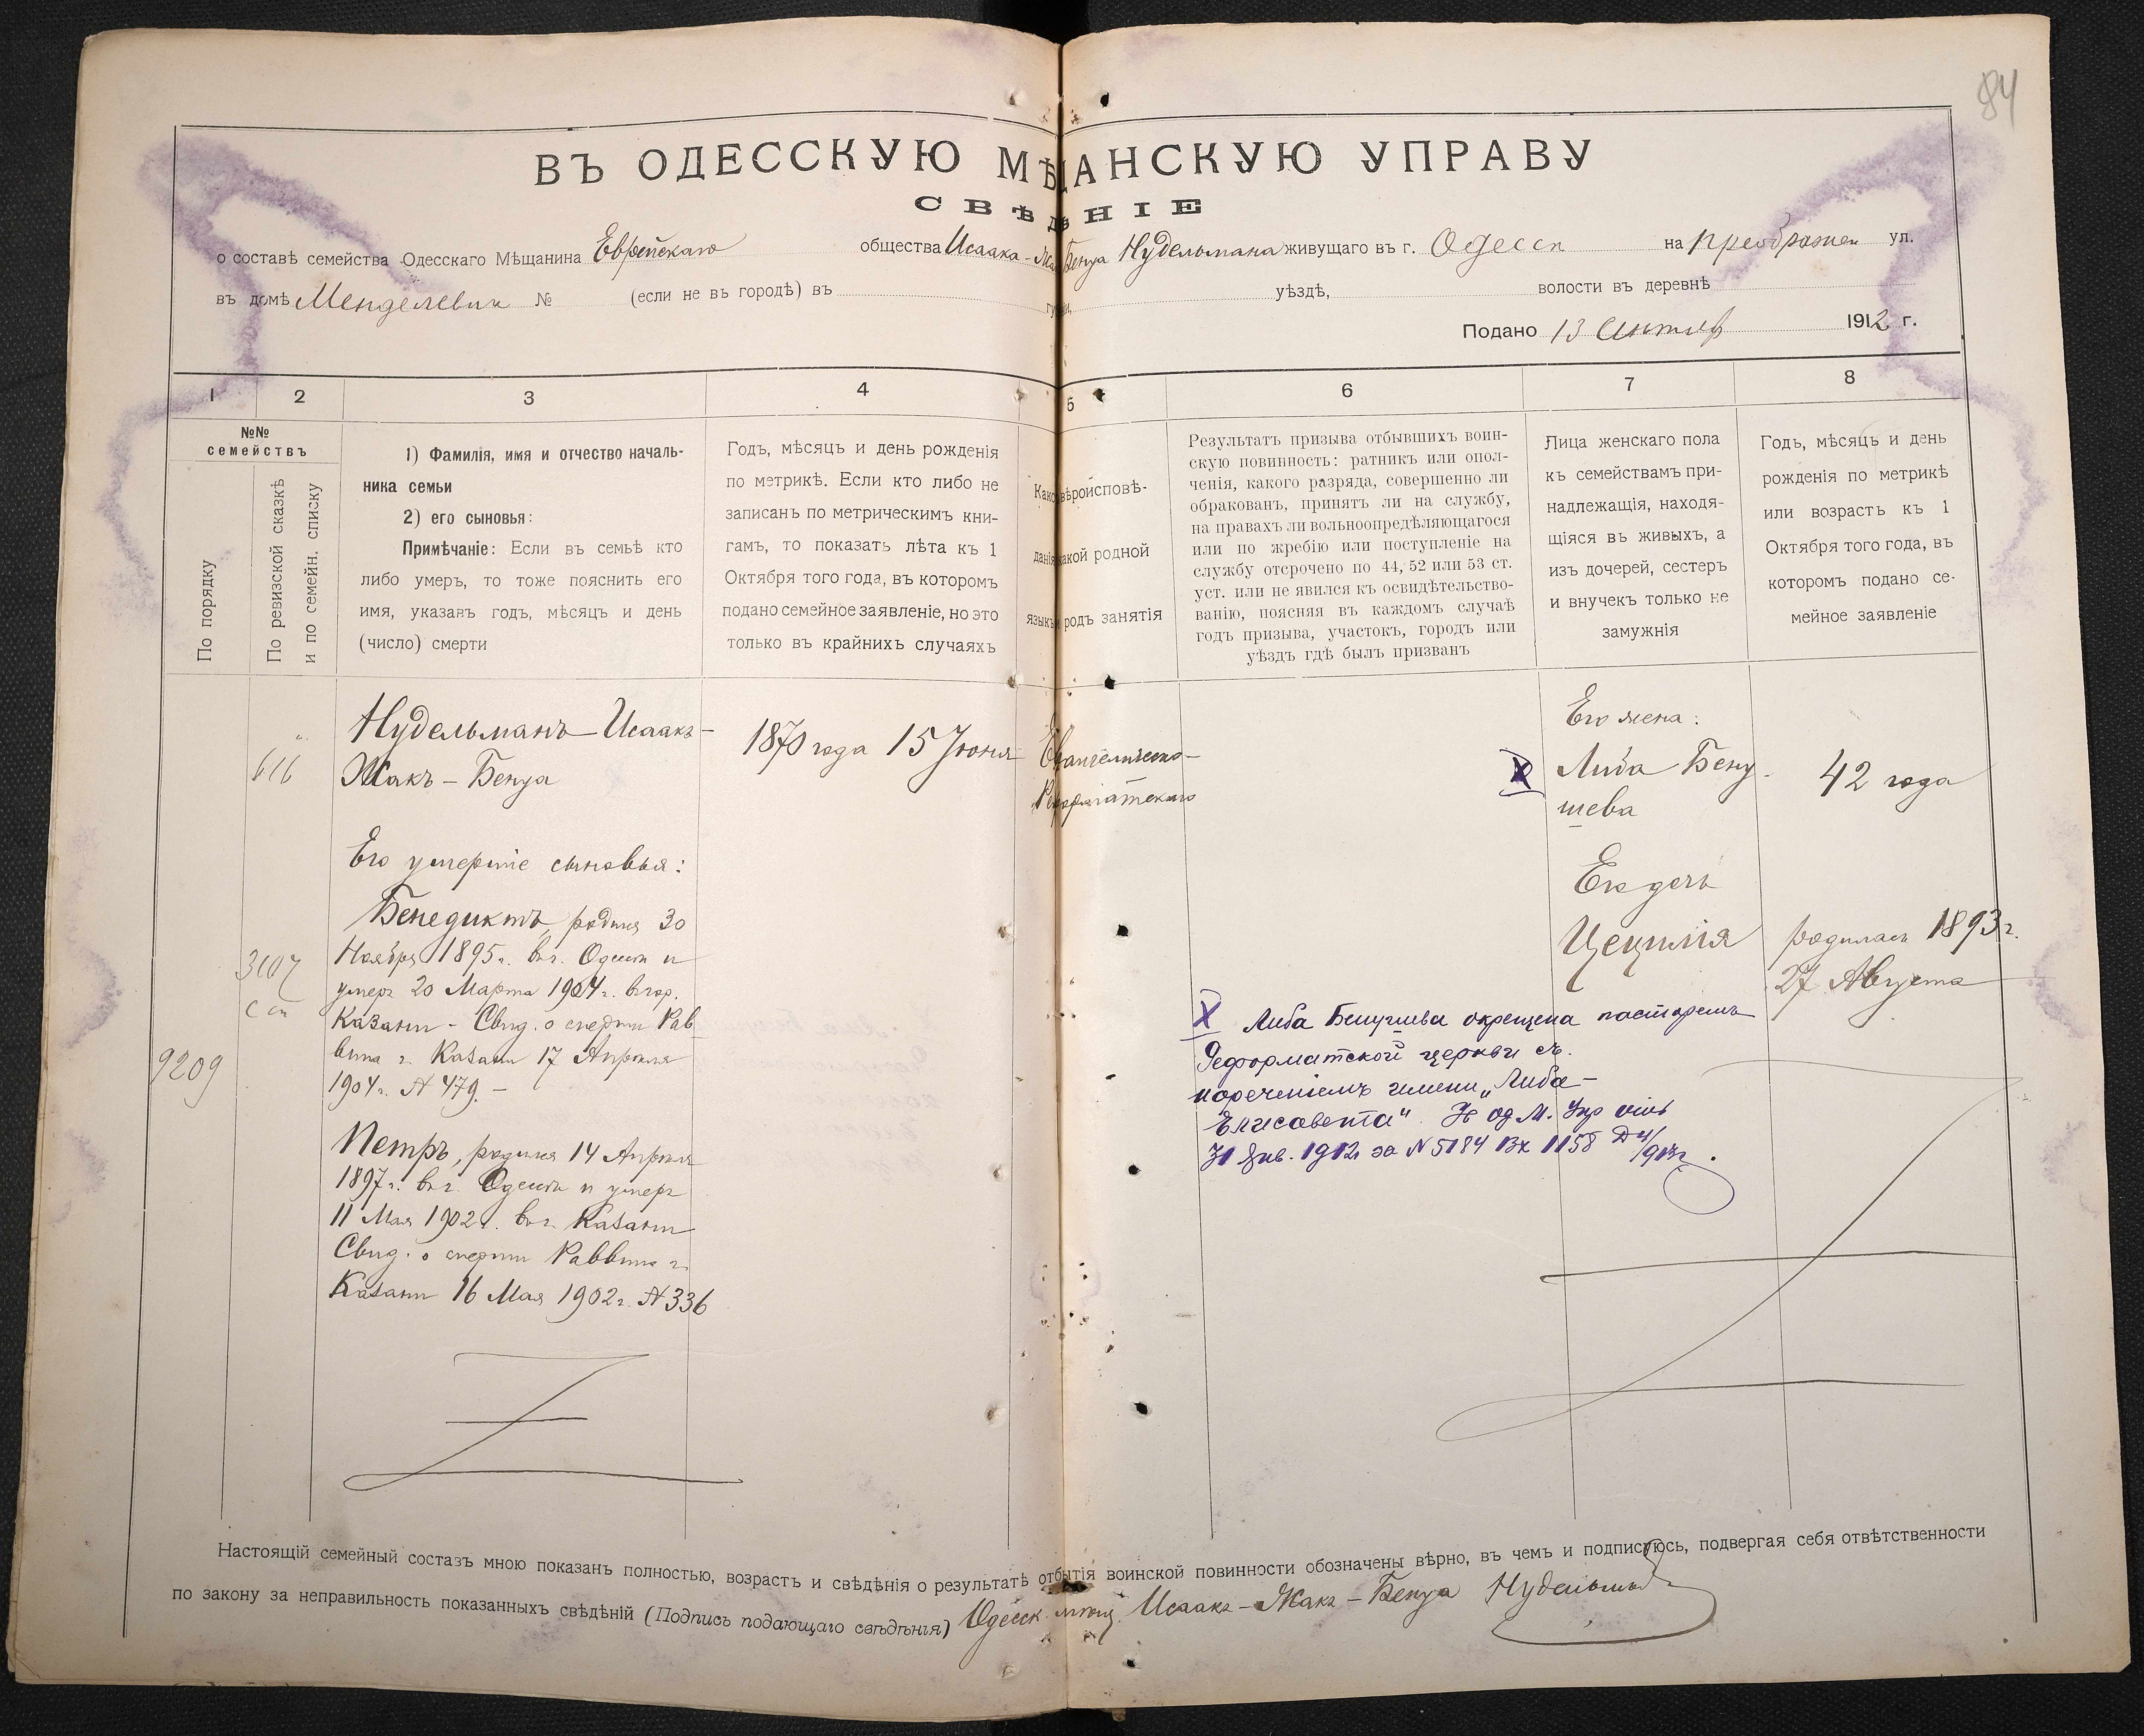 84
ВЪ ОДЕССКУЮ МѢЩАНСКУЮ УПРАВУ
СВѢДѢНІЕ
о составѣ семейства Одесскаго Мѣщанина Еврейскаго общества Исаака-Жака Бенуа Нудельмана живущаго въ г. Одессѣ на Преображен ул.
въ домѣ Менделевич № (если не въ городѣ) въ губерніи, уѣздѣ, волости въ деревнѣ
Подано 13 1912 г.
1 2 3 4 5 6 7 8
№№
семействъ
По порядку
По ревизской сказкѣ
и по семейн. списку
1) Фамилія, имя и отчество началь-
ника семьи
2) его сыновья:
Примѣчаніе: Если въ семьѣ кто
либо умеръ, то тоже пояснить его
имя, указавъ годъ, мѣсяцъ и день
(число) смерти
Годъ, мѣсяцъ и день рожденія
по метрикѣ. Если кто либо не
записанъ по метрическимъ кни-
гамъ, то показать лѣта къ 1
Октября того года, въ которомъ
подано семейное заявленіе, но это
только въ крайнихъ случаяхъ
Какого вѣроисповѣ-
данія какой родной
языкъ и родъ занятія
Результатъ призыва отбывшихъ воин-
скую повинность: ратникъ или опол-
ченія, какого разряда, совершенно ли
обракованъ, принятъ ли на службу,
на правахъ ли вольноопредѣляющагося
или по жребію или поступленіе на
службу отсрочено по 44, 52 или 53 ст.
уст. или не явился къ освидѣтельство-
ванію, поясняя въ каждомъ случаѣ
годъ призыва, участокъ, городъ или
уѣздъ гдѣ былъ призванъ
Лица женскаго пола
къ семействамъ при-
надлежащія, находя-
щіяся въ живыхъ, а
изъ дочерей, сестеръ
и внучекъ только не
замужнія
Годъ, мѣсяцъ и день
рожденія по метрикѣ
или возрастъ къ 1
Октября того года, въ
которомъ подано се-
мейное заявленіе
616
Нудельманъ Исаакъ-
Жакъ-Бенуа
1870 года 15 Іюня
Евангелическо-
Реформатскаго
Его жена:
Х Либа Бену-
шева
42 года
Его умершіе сыновья:
Бенедиктъ, родился 30
Ноября 1895 г. въ г. Одессѣ и
умеръ 20 Марта 1904 г. въ гор.
Казани - Свид. о смерти Рав-
вина г. Казани 17 Апрѣля
1904 г. № 479. -
3107
9209
Петръ, родился 14 Апрѣля
1897 г. въ г. Одессѣ и умеръ
11 Мая 1902 г. въ г. Казани
Свид. о смерти Раввина г.
Казани 16 Мая 1902 г. № 336
Его дочь
Цецилія
родилась 1893 г.
27 Августа
Х Либа Бенушева окрещена пасторомъ
Реформатской церкви съ
нареченіемъ имени „Либа-
Елисавета“. од. М. Упр
31 Янв. 1912 за № 5184 Вх 1158
Настоящій семейный составъ мною показанъ полностью, возрастъ и свѣдѣнія о результатѣ отбытія воинской повинности обозначены вѣрно, въ чемъ и подписуюсь, подвергая себя отвѣтственности
по закону за неправильность показанныхъ свѣдѣній (Подпись подающаго свѣдѣнія) Одесск. мѣщ. Исаакъ-Жакъ-Бенуа Нудельманъ